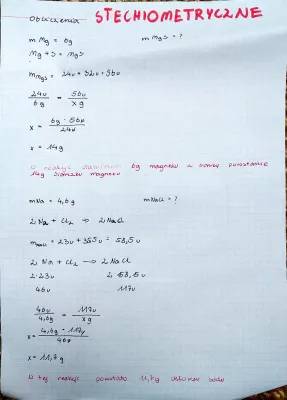 Obliczenia STECHIOMETRYCZNE
m Mg = 6g m MgS = ?
Mg + S = MgS
m MgS = 24u + 32u = 56u
24u / 6g = 56u / x g
x = 6g · 56u / 24u
x = 14g
W reakcji 6g magnezu z siarką powstanie
14g siarczku magnezu
mNa = 4,6g mNaCl = ?
2 Na + Cl₂ ⇒ 2 NaCl
m NaCl = 23u + 35,5u = 58,5u
2 Na + Cl₂ → 2 NaCl
2·23u 2·58,5u
46u 117u
46u / 4,6g = 117u / x g
x = 4,6g · 117u / 46u
x = 11,7g
W tej reakcji powstało 11,7g chlorku sodu